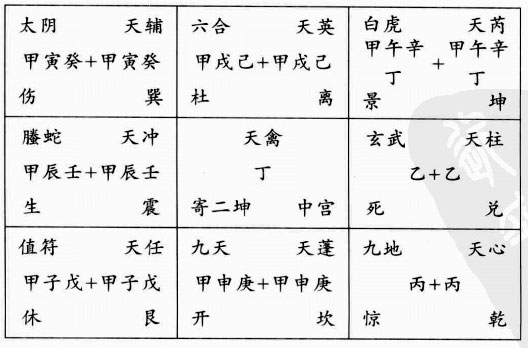 太阴 天辅
甲寅癸+甲寅癸
伤 巽
六合 天英
甲戌己+甲戌己
杜 离
白虎 天芮
甲午辛 + 甲午辛
丁 丁
景 坤
螣蛇 天冲
甲辰壬+甲辰壬
生 震
天禽
丁
寄二坤 中宫
玄武 天柱
乙+乙
死 兑
值符 天任
甲子戊+甲子戊
休 艮
九天 天蓬
甲申庚+甲申庚
开 坎
九地 天心
丙+丙
惊 乾